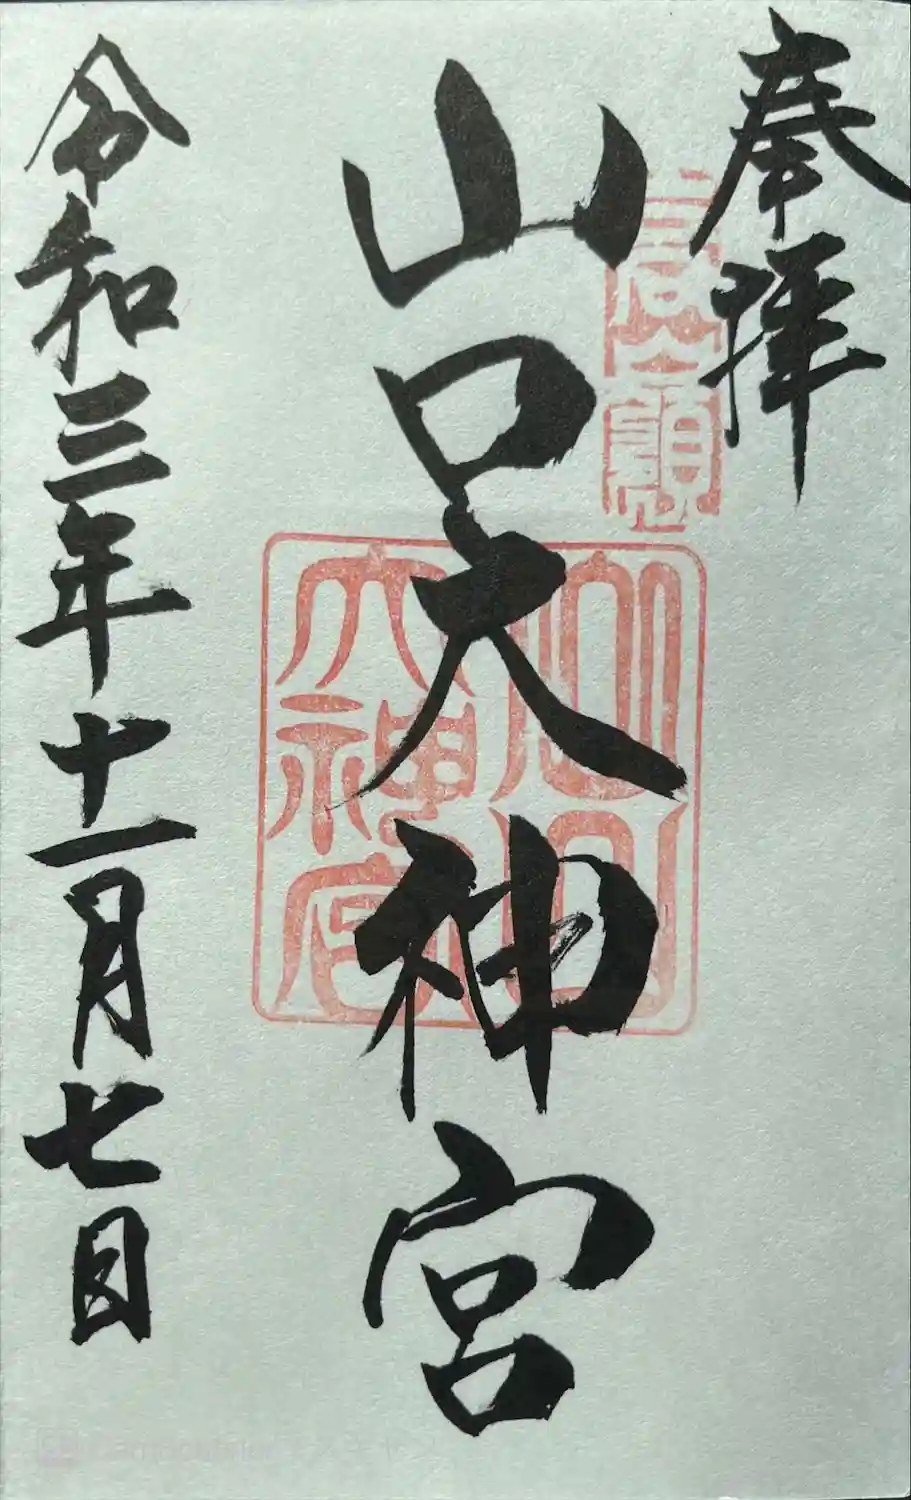 奉拝
山口大神宮
山口
大神宮
令和三年十一月七日